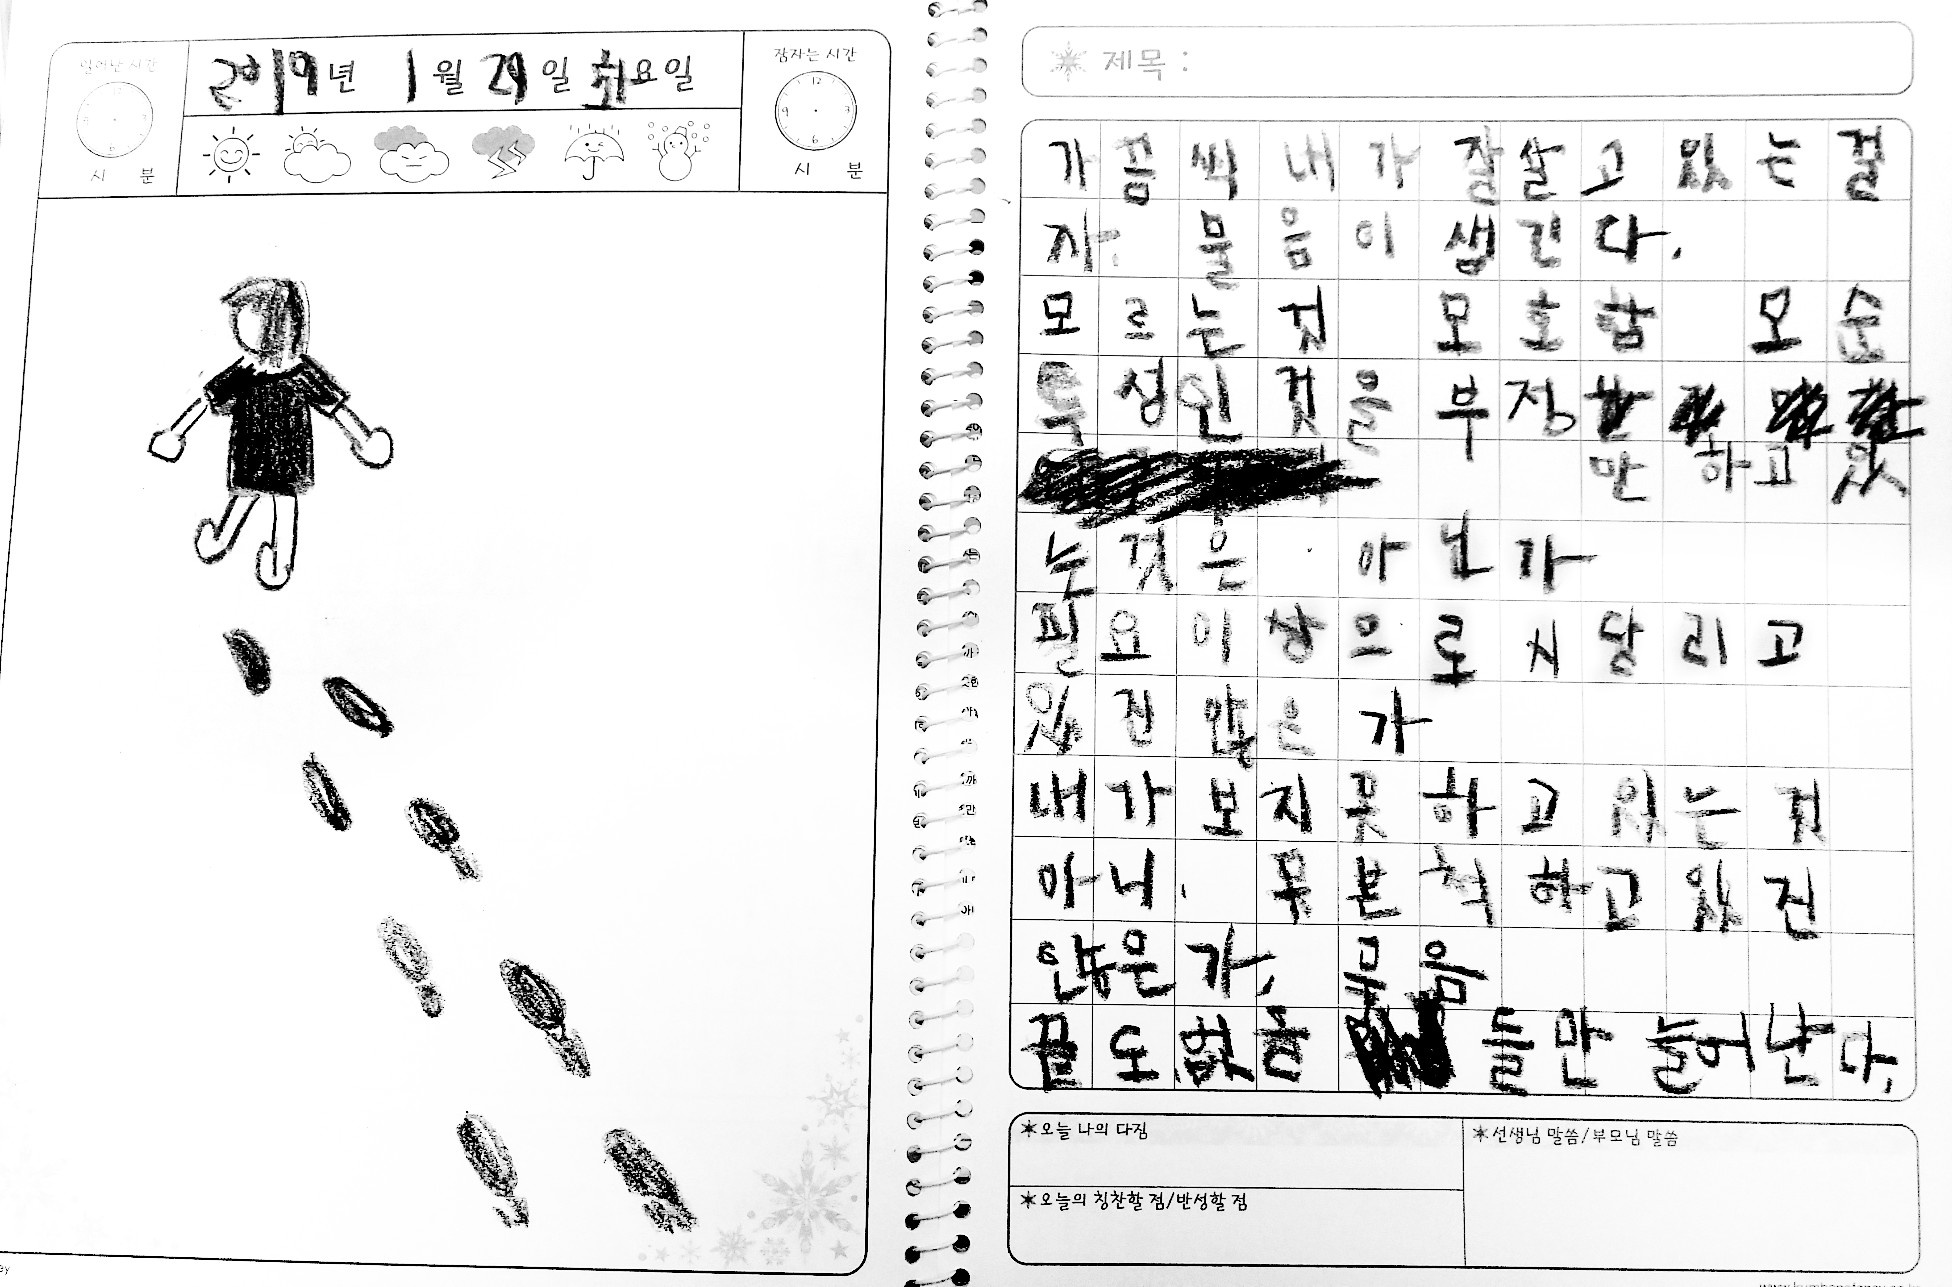 일어난 시간
2019년 1월 29일 화요일
잠자는 시간
시 분
시 분
제목 :
가끔씩 내가 잘살고 있는걸
까. 물음이 생긴다.
모르는 것 모호함 모순
투성인 것을 부정
만 하고 있
는 것은 아닌가
필요이상으로 시달리고
있진 않은가
내가 보지 못하고 있는 것
아니. 못본척하고 있진
않은가, 물음
끝도 없는 들만 늘어난다.
*오늘 나의 다짐
*선생님 말씀/부모님 말씀
*오늘의 칭찬할 점/반성할 점